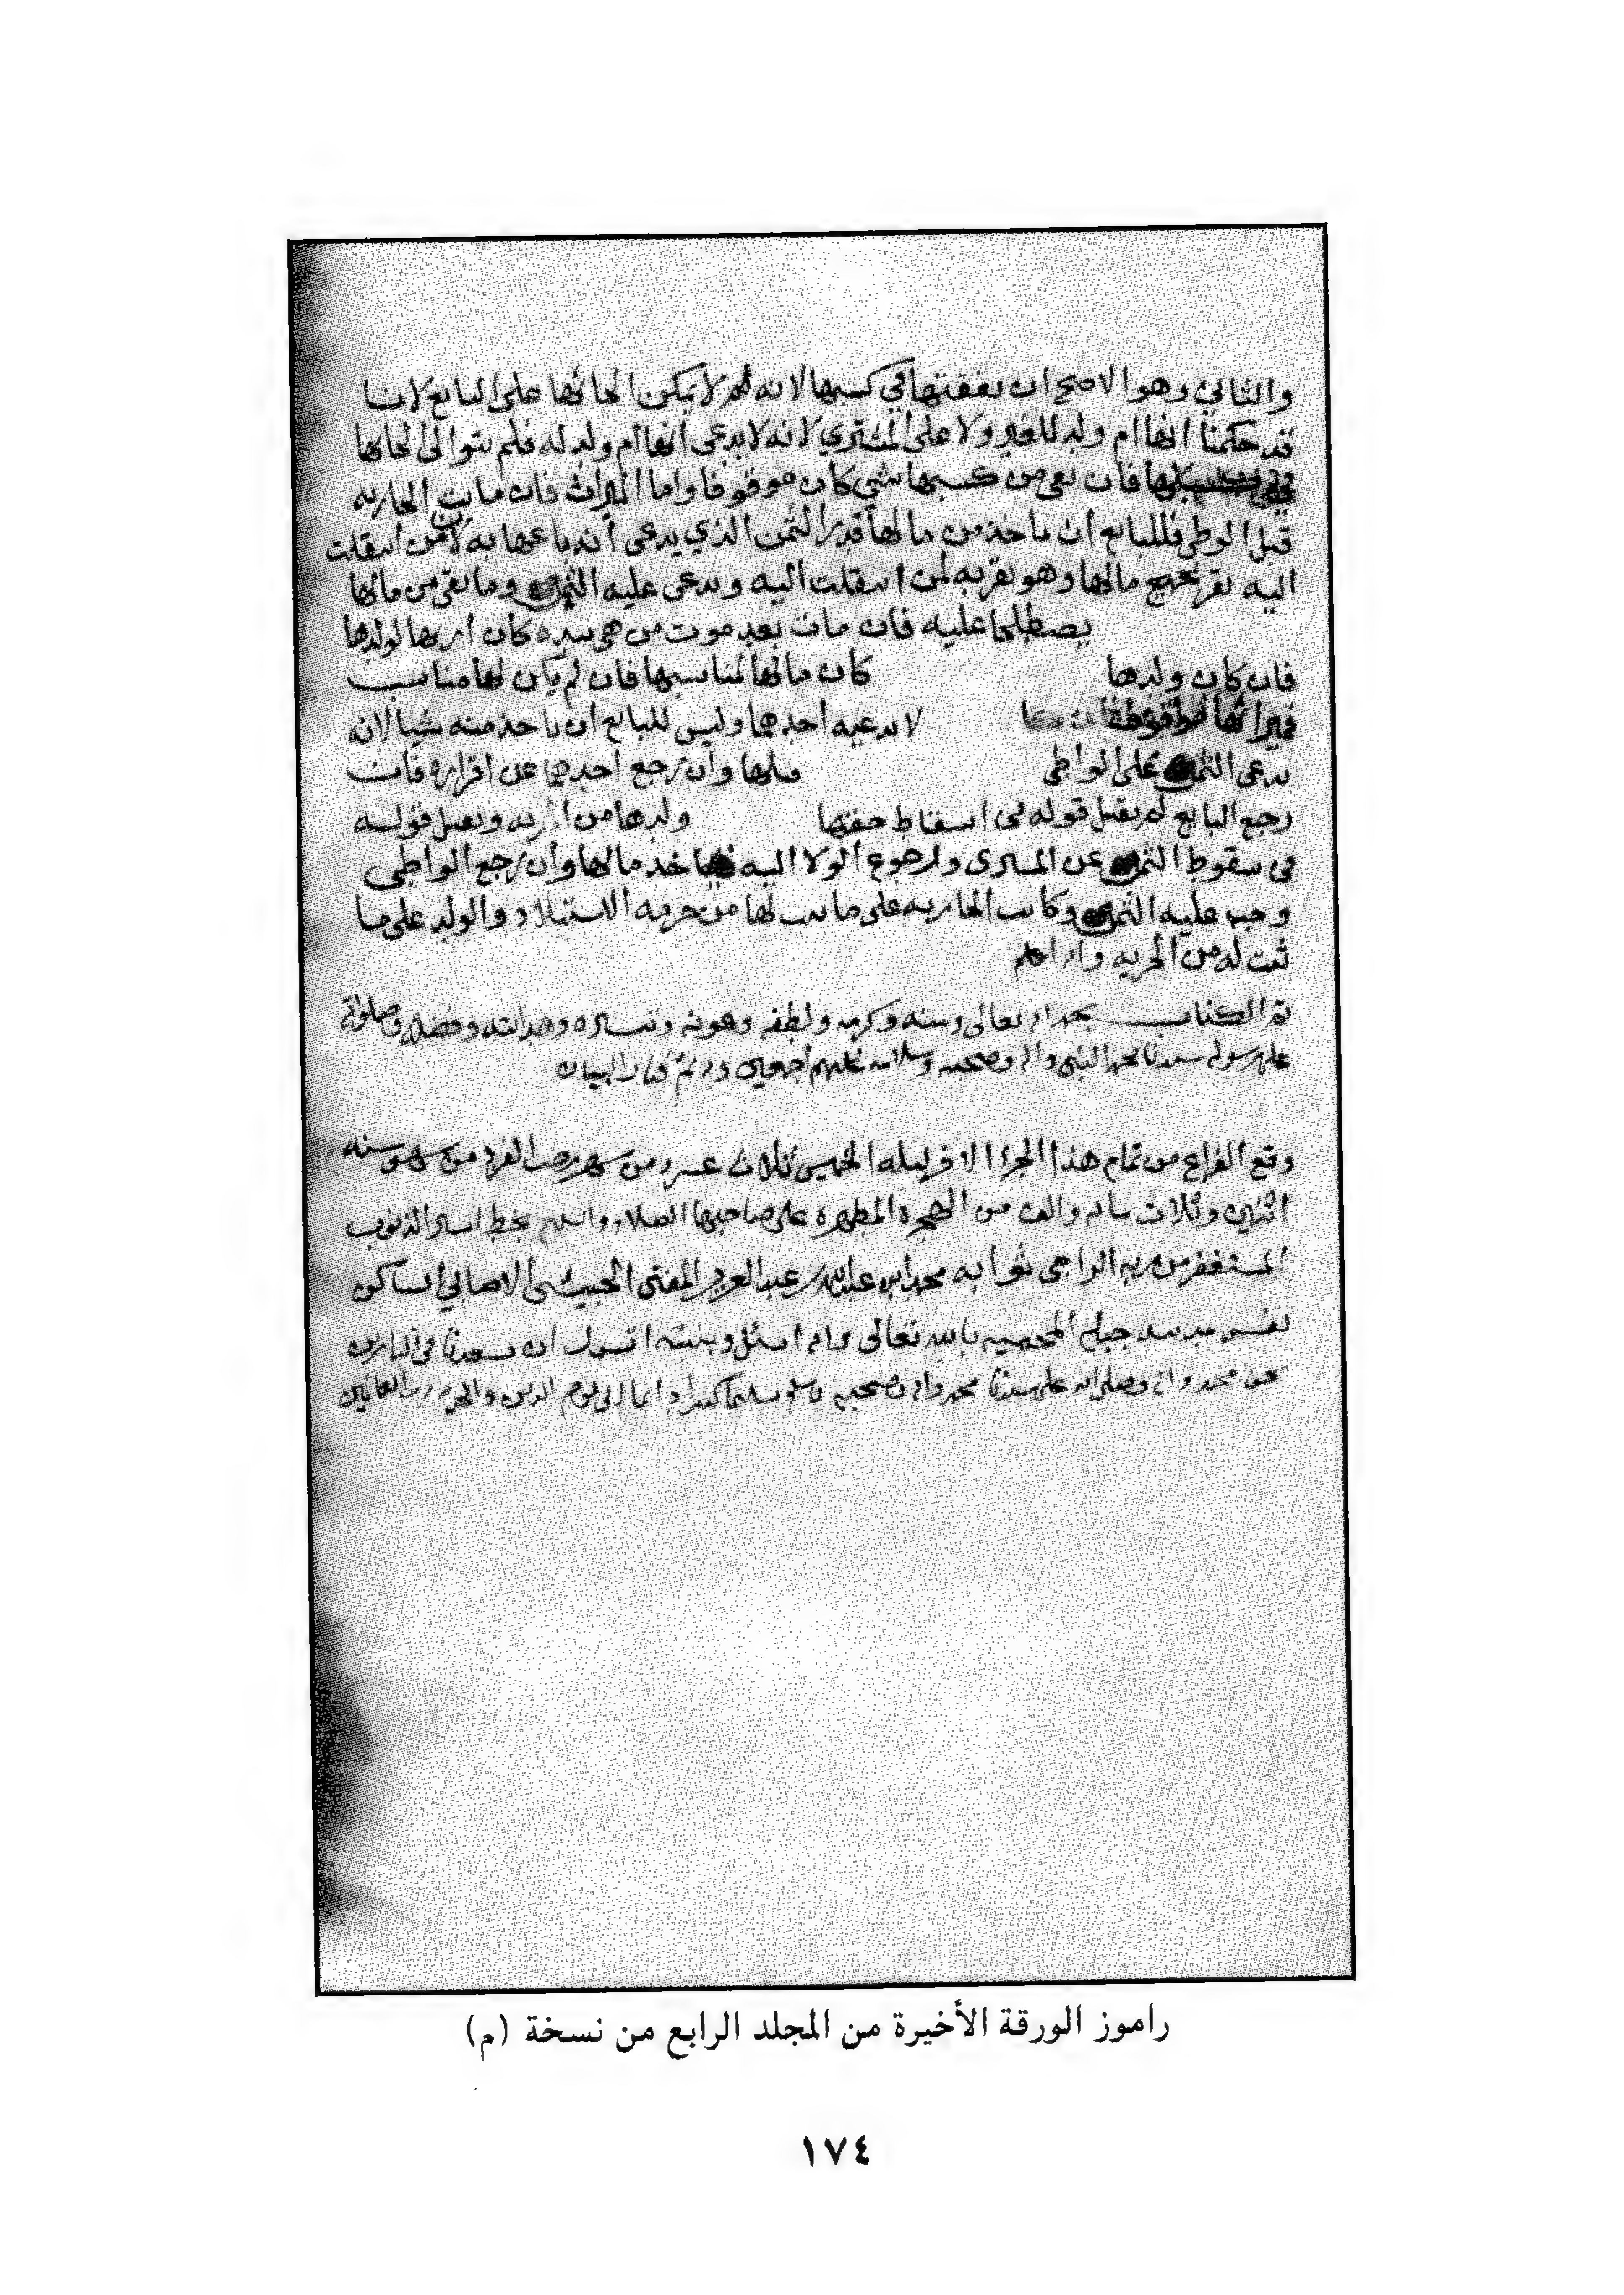 والثاني وهو الاصح ان نفقتها في كسبها لانه لا يمكن الحاقها على البايع لانا
قد حكمنا انها ام ولد للغير ولا على المشتري لانه لا يدعى انها ام ولد له فلم
فان بقي من كسبها شي كان موقوفا واما الميراث فان ماتت الجاريه
قبل الوطي فللبايع ان ياخذ من مالها قدر الثمن الذي يدعى أنه باعها به لان من انتقلت
اليه يقر بجميع مالها وهو يقر به لمن انتقلت اليه ويدعى عليه الثمن وما بقي من مالها
يصطلحا عليه فان مات بعد موت من هي بيده كان لولدها
فان كان ولدها كان مالها لمناسبها فان لم يكن لها مناسب
فميراثها موقوف لا يدعيه أحدهما وليس للبايع أن ياخذ منه شيا لانه
يدعى الثمن على الواطي وأن رجع أحدهما عن اقراره فان
رجع البايع لم يقبل قوله في اسقاط حقها ولدها من ويقبل قوله
في سقوط الثمن عن المشترى ولرجوع الولا اليه فياخذ مالها وأن رجع الواطي
وجب عليه الثمن وكانت الجاريه على ما ثبت لها من حرمه الاستيلاد والولد على ما
ثبت له من الحريه والله اعلم
تم الكتاب بحمد الله تعالى ومنه وكرمه ولطفه وعونه وهدايته وفضله وصلواته
على رسوله سيدنا محمد النبي واله وصحبه وسلامه عليهم أجمعين كتاب البيان
وقع الفراغ من تمام هذا الجزا ليله الخميس ثلاث عشر من شهر رجب الفرد من شهور سنه
اثنين وثلاث مايه والف من الهجره المطهره على صاحبها الصلاه والسلام بخط اسير الذنوب
المستغفر من ربه الراجى ثوابه محمد ابن عبدالله عبد العزيز المفتى الحبيشى الاصابي الساكن
جبله المحميه بالله تعالى
محمد واله وصلى الله على سيدنا محمد واله وصحبه وسلم تسليما كثيرا الى يوم الدين والحمد لله رب العالمين
راموز الورقة الأخيرة من المجلد الرابع من نسخة (م)
١٧٤